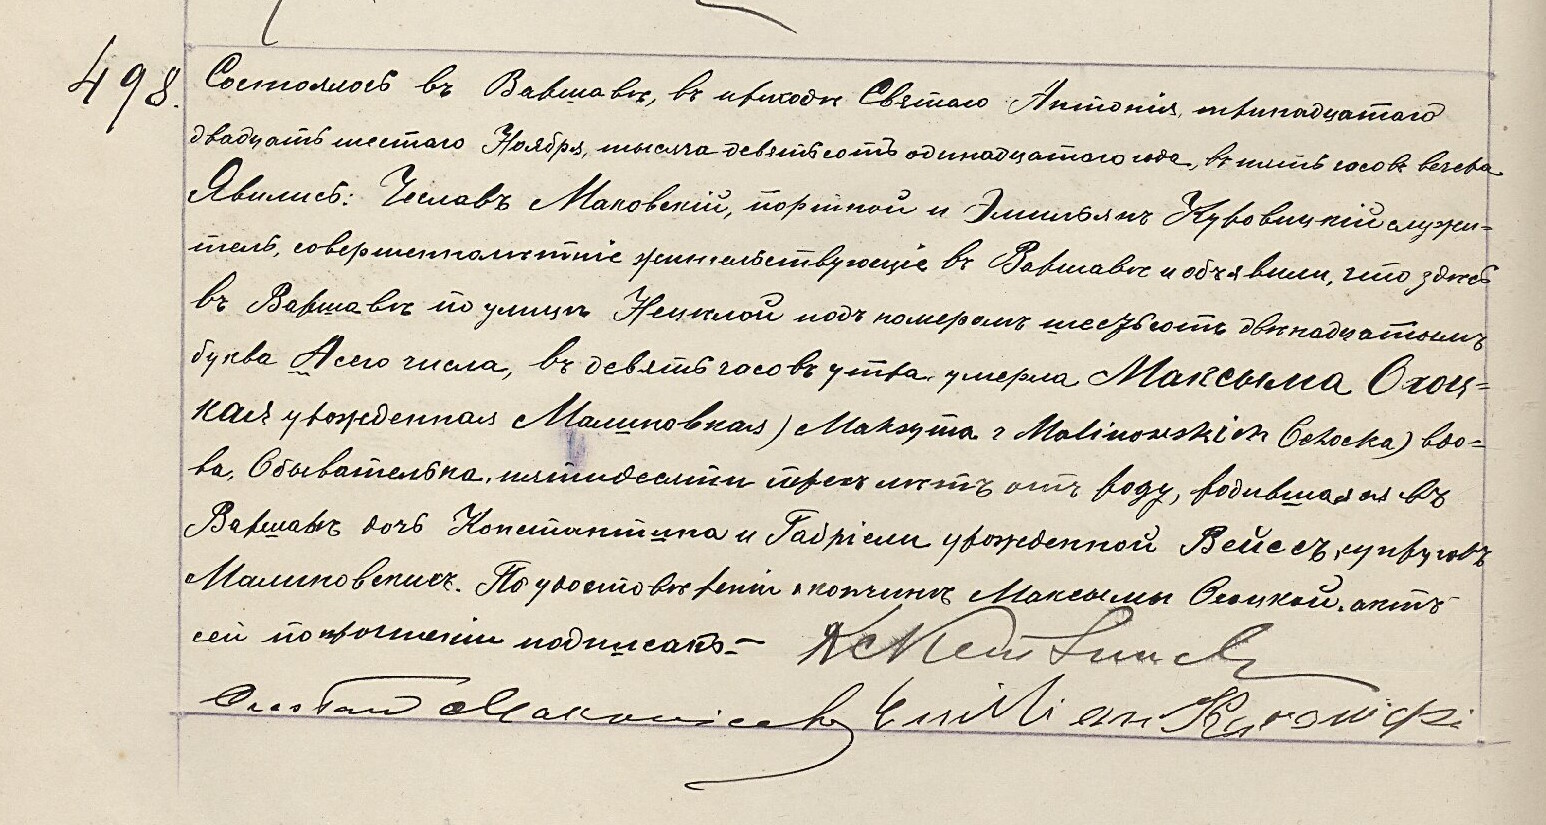 498.
Состоялось въ Варшавѣ, въ приходѣ Святаго Антонія, тринадцатаго
двадцать шестаго Ноября, тысяча девятьсотъ одинадцатаго года, въ пять часовъ вечера
Явились: Чеславъ Маковскій, портной и Эмильянъ Куровицкій служи=
тель, совершеннолѣтніе жительствующіе въ Варшавѣ и объявили, что здѣсь
въ Варшавѣ по улицѣ Нецѣлой подъ номеромъ шестьсотъ двѣнадцатымъ
буква А сего числа, въ девять часовъ утра, умерла Максыма Охоц=
кая урожденная Малиновская) Maksyma z Malinowskich Ochocka) вдо=
ва, Обывателька, пятидесяти трехъ лѣтъ отъ роду, родившаяся въ
Варшавѣ дочь Константина и Габріели урожденной Вейссъ, супруговъ
Малиновскихъ. По удостовѣреніи о кончинѣ Максымы Охоцкой, актъ
сей по прочтеніи подписанъ.—
Czesław Makowski Emilian Kurowicki